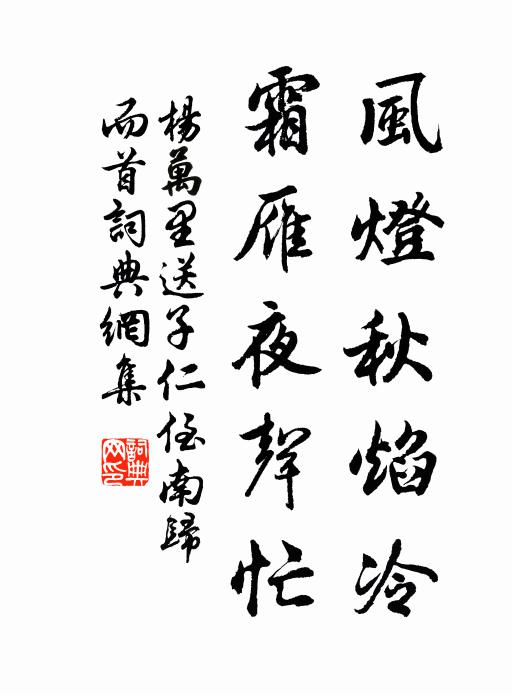 風燈秋焰冷
霜雁夜聲忙
楊萬里送子仁侄南歸
兩首詞典網集
詞典
网印